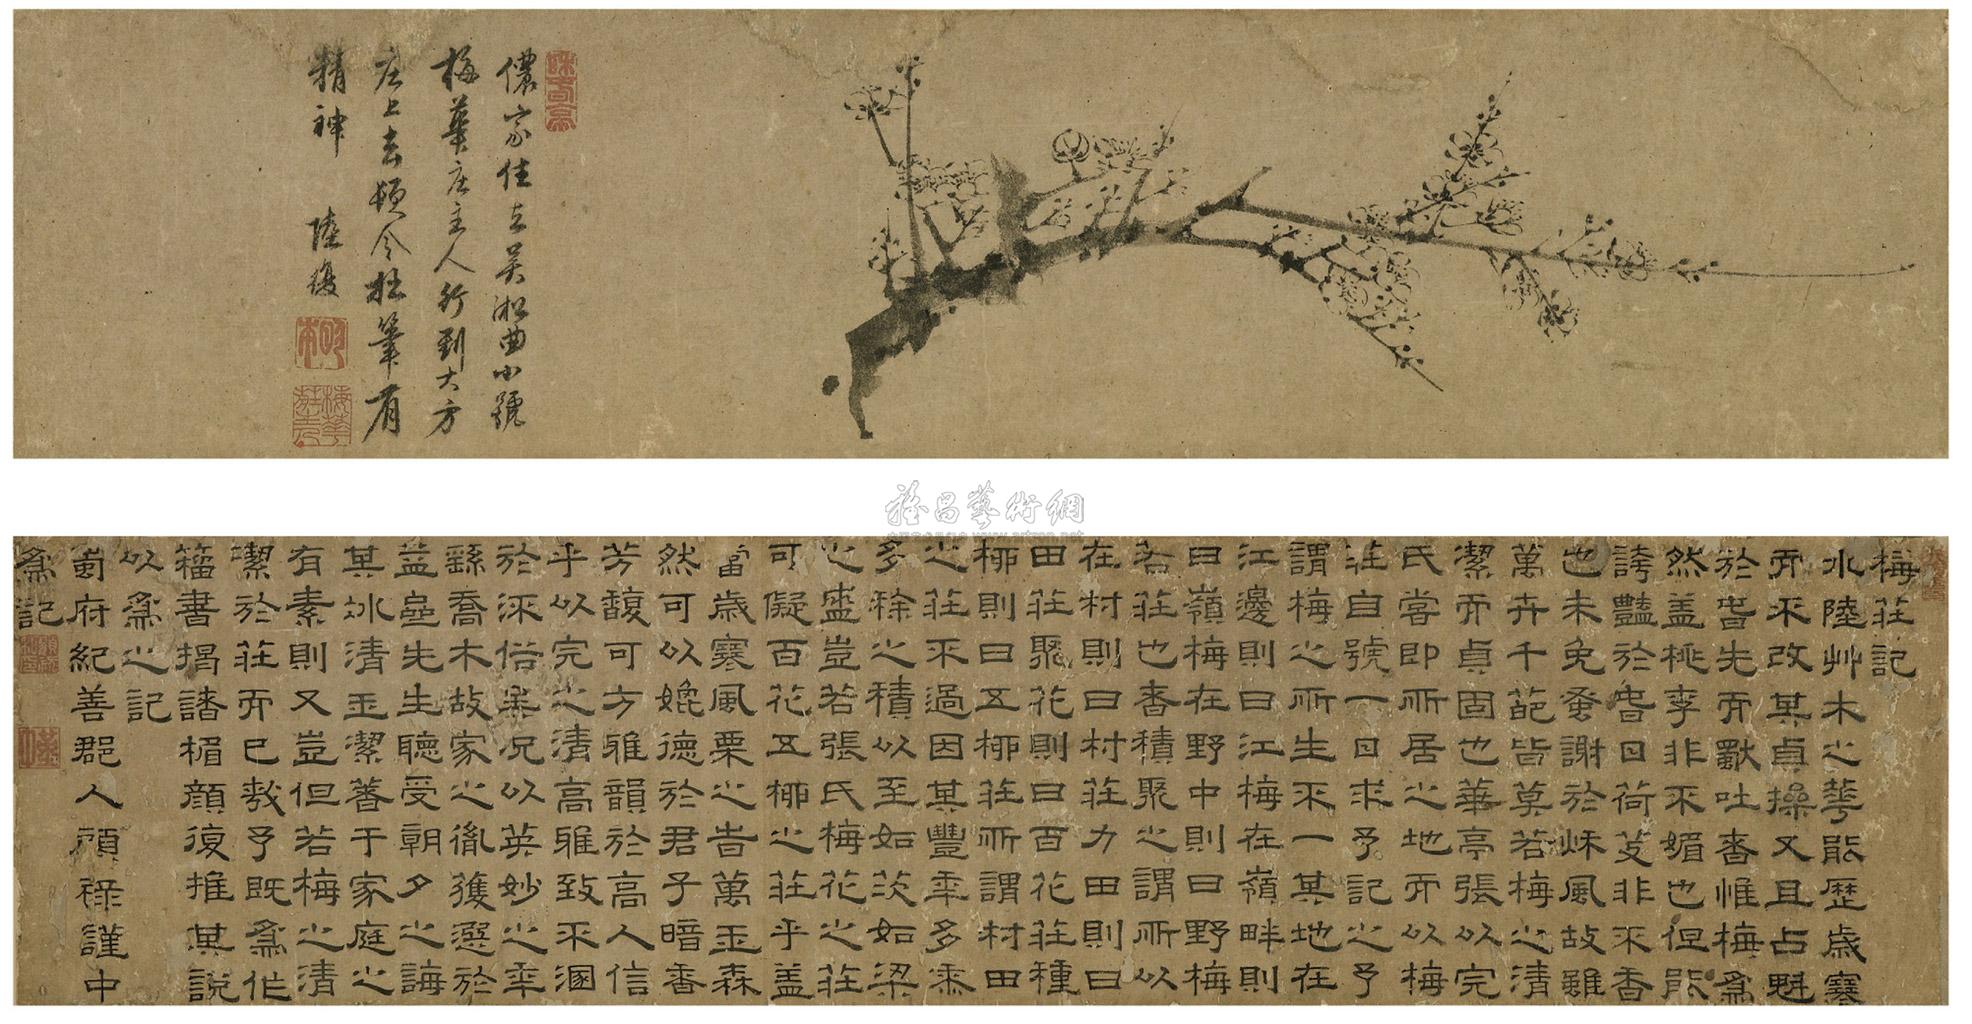 儂家住立吳淞曲小號
梅華庄主人行到大方
庄上去頓令拙筆有
精神 陸復
明本
梅華莊主人
雅昌藝術網
梅莊記
水陸艸木之華能歷歲寒
而不改其貞操又且占魁
於昔先而獸吐香惟梅為
然盖桃李非不媚也但能
誇豔於昔日荷芰非不香
也未免發謝於秌風故雖
萬卉千葩皆莫若梅之清
潔而貞固也華亭張以完
氏嘗即所居之地而以梅
莊自號一日求予記之予
謂梅之所生不一其地在
江邊則曰江梅在嶺畔則
曰嶺梅在野中則曰野梅
若莊也者積聚之謂所以
在村則曰村莊力田則曰
田莊聚花則曰百花莊種
柳則曰五柳莊所謂村田
之莊不過因其豐秊多黍
多稌之積以至如茨如梁
之盛豈若張氏梅花之莊
可儗百花五柳之莊乎盖
當歲寒風栗之昔萬玉森
然可以媲德於君子暗香
芳馥可方雅韻於高人信
乎以完之清高雅致不溷
於流俗業況以英妙之秊
繇喬木故家之胤獲選於
益壘先生聽受朝夕之誨
其冰清玉潔蓄于家庭之
有素則又豈但若梅之清
潔於莊而已哉予既為作
籕書揭諸楣顏復推其說
以為之記
蜀府紀善郡人顧祿謹中
為記